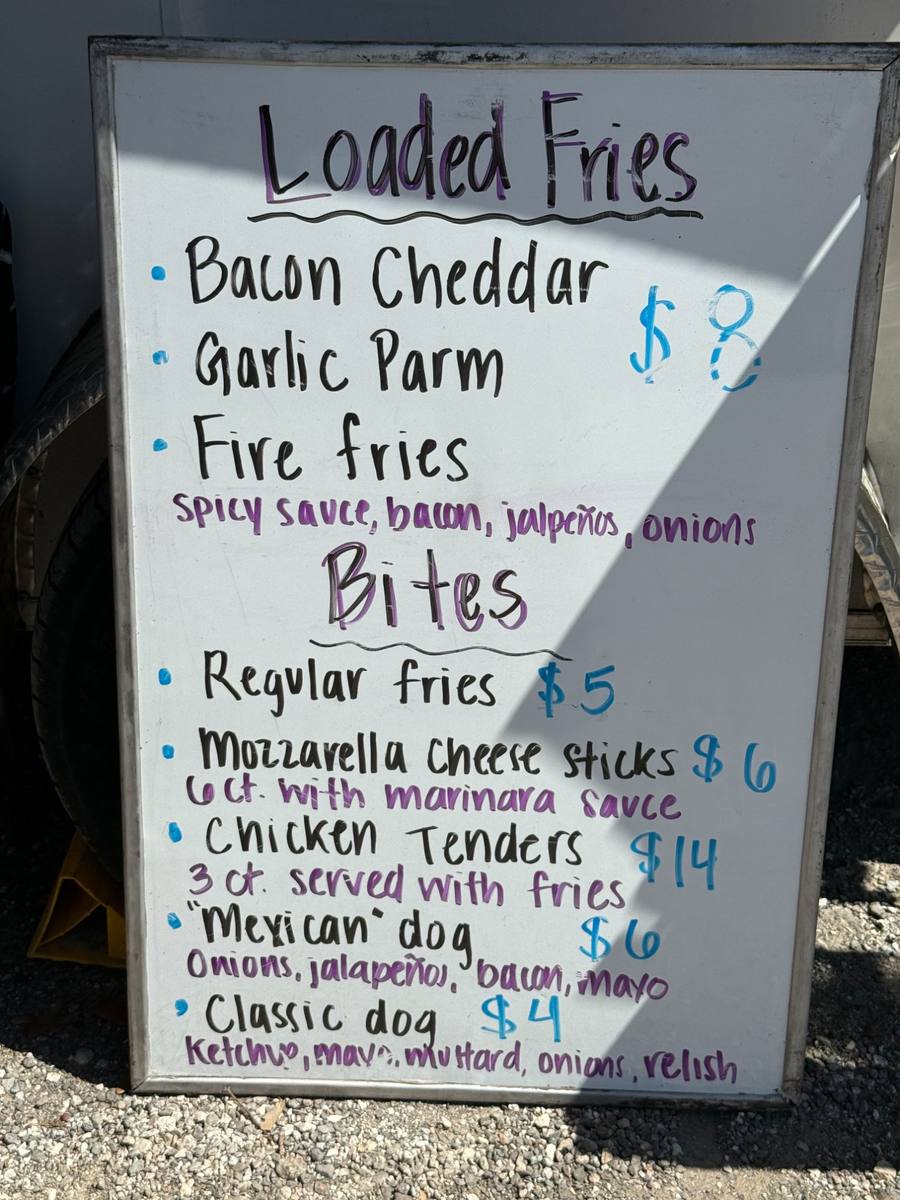 Loaded Fries
• Bacon Cheddar
$8
• Garlic Parm
• Fire fries
spicy sauce, bacon, jalpeños, onions
Bites
• Regular fries $5
• Mozzarella cheese sticks $6
6 ct. with marinara sauce
• Chicken Tenders $14
3 ct. served with fries
• "Mexican" dog $6
Onions, jalapeños, bacon, mayo
• Classic dog $4
Ketchup, mayo, mustard, onions, relish